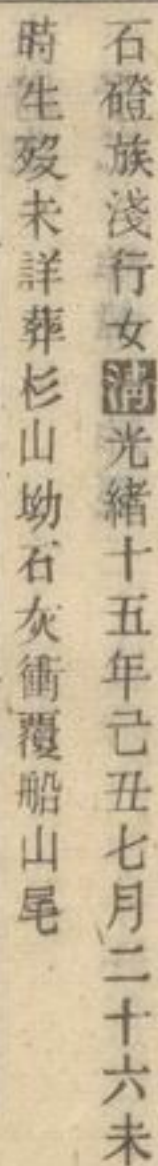 石磴族淺行女清光緒十五年己丑七月二十六未
時生歿未詳葬杉山坳石灰衝覆船山尾